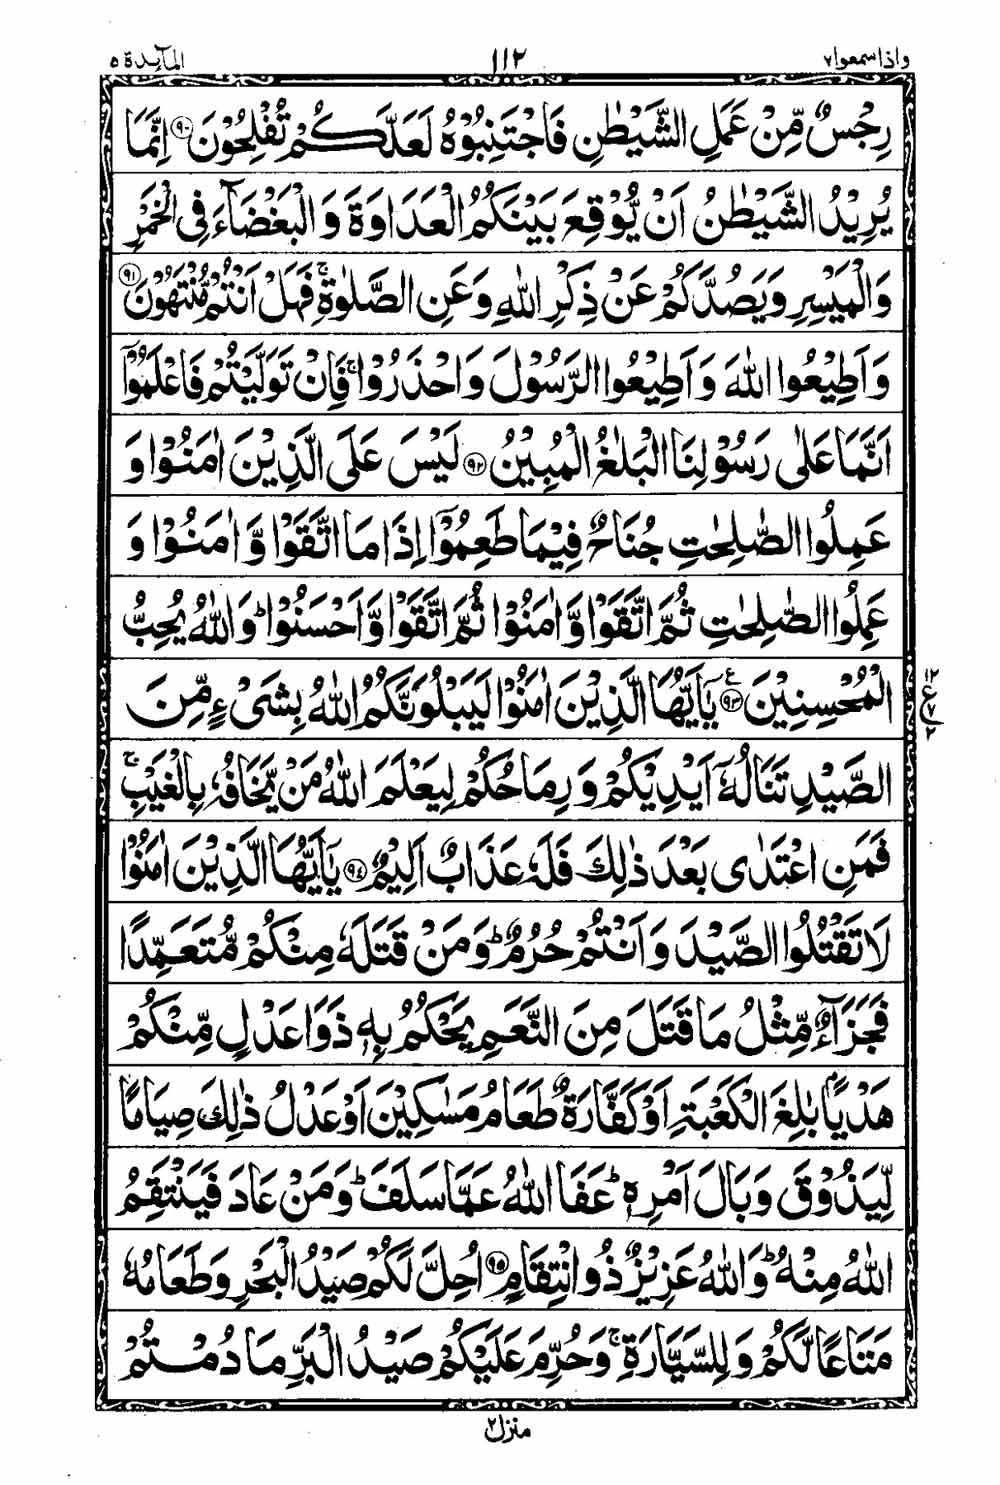 واذاسمعوا۷ ۱۱۲ المآىِٕدة ۵
رِجْسٌ مِّنْ عَمَلِ الشَّيْطٰنِ فَاجْتَنِبُوْهُ لَعَلَّكُمْ تُفْلِحُوْنَ ۹۰ اِنَّمَا
يُرِيْدُ الشَّيْطٰنُ اَنْ يُّوْقِعَ بَيْنَكُمُ الْعَدَاوَةَ وَ الْبَغْضَآءَ فِى الْخَمْرِ
وَالْمَيْسِرِ وَيَصُدَّكُمْ عَنْ ذِكْرِ اللّٰهِ وَعَنِ الصَّلٰوةِ ۚ فَهَلْ اَنْتُمْ مُّنْتَهُوْنَ ۹۱
وَ اَطِيْعُوا اللّٰهَ وَ اَطِيْعُوا الرَّسُوْلَ وَ احْذَرُوْا ۚ فَاِنْ تَوَلَّيْتُمْ فَاعْلَمُوْٓا
اَنَّمَا عَلٰى رَسُوْلِنَا الْبَلٰغُ الْمُبِيْنُ ۹۲ لَيْسَ عَلَى الَّذِيْنَ اٰمَنُوْا وَ
عَمِلُوا الصّٰلِحٰتِ جُنَاحٌ فِيْمَا طَعِمُوْٓا اِذَا مَا اتَّقَوْا وَّ اٰمَنُوْا وَ
عَمِلُوا الصّٰلِحٰتِ ثُمَّ اتَّقَوْا وَّ اٰمَنُوْا ثُمَّ اتَّقَوْا وَّ اَحْسَنُوْا ؕ وَ اللّٰهُ يُحِبُّ
الْمُحْسِنِيْنَ ۹۳ ع يٰۤاَيُّهَا الَّذِيْنَ اٰمَنُوْا لَيَبْلُوَنَّكُمُ اللّٰهُ بِشَىْءٍ مِّنَ
۱۲ ع ۷ ۲
الصَّيْدِ تَنَالُهٗۤ اَيْدِيْكُمْ وَ رِمَاحُكُمْ لِيَعْلَمَ اللّٰهُ مَنْ يَّخَافُهٗ بِالْغَيْبِ ۚ
فَمَنِ اعْتَدٰى بَعْدَ ذٰلِكَ فَلَهٗ عَذَابٌ اَلِيْمٌ ۹۴ يٰۤاَيُّهَا الَّذِيْنَ اٰمَنُوْا
لَا تَقْتُلُوا الصَّيْدَ وَ اَنْتُمْ حُرُمٌ ؕ وَ مَنْ قَتَلَهٗ مِنْكُمْ مُّتَعَمِّدًا
فَجَزَآءٌ مِّثْلُ مَا قَتَلَ مِنَ النَّعَمِ يَحْكُمُ بِهٖ ذَوَا عَدْلٍ مِّنْكُمْ
هَدْيًۢا بٰلِغَ الْكَعْبَةِ اَوْ كَفَّارَةٌ طَعَامُ مَسٰكِيْنَ اَوْ عَدْلُ ذٰلِكَ صِيَامًا
لِّيَذُوْقَ وَبَالَ اَمْرِهٖ ؕ عَفَا اللّٰهُ عَمَّا سَلَفَ ؕ وَ مَنْ عَادَ فَيَنْتَقِمُ
اللّٰهُ مِنْهُ ؕ وَ اللّٰهُ عَزِيْزٌ ذُو انْتِقَامٍ ۹۵ اُحِلَّ لَكُمْ صَيْدُ الْبَحْرِ وَ طَعَامُهٗ
مَتَاعًا لَّكُمْ وَ لِلسَّيَّارَةِ ۚ وَ حُرِّمَ عَلَيْكُمْ صَيْدُ الْبَرِّ مَا دُمْتُمْ
منزل ۲